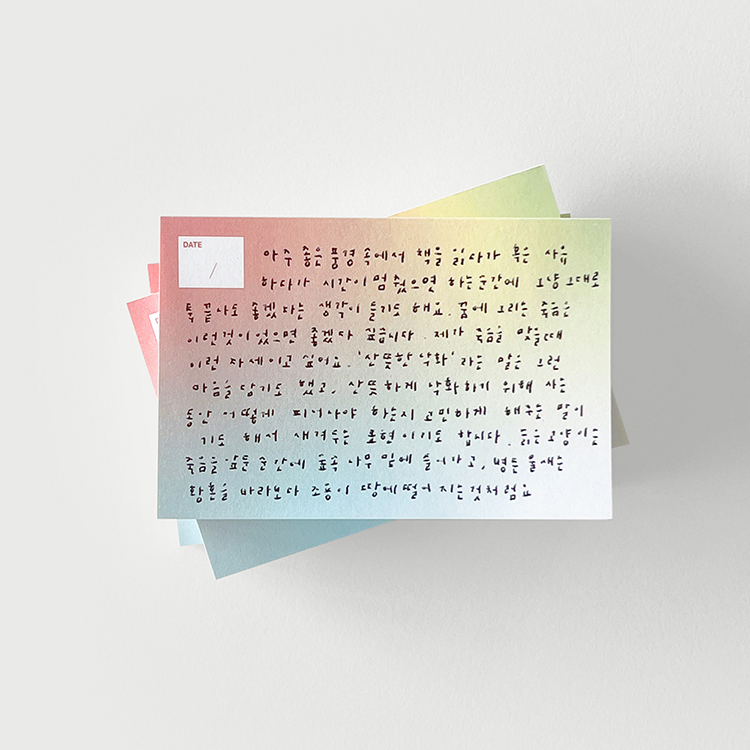 DATE
/
아주 좋은 풍경 속에서 책을 읽다가 혹은 사유
하다가 시간이 멈췄으면 하는순간에 그냥 그대로
툭 끝나도 좋겠다는 생각이 들기도 해요. 꿈에 그리는 죽음은
이런것이 있으면 좋겠다 싶습니다. 제가 죽음을 맞을때
이런 자세이고 싶어요. '산뜻한 낙화' 라는 말은 그런
마음을 담기도 했고, 산뜻하게 낙화하기 위해 사는
동안 어떻게 피어나야 하는지 고민하게 해주는 말이
기도 해서 새겨두는 표현이기도 합니다. 늙은 고양이는
죽음을 앞둔 순간에 숲속 나무 밑에 들어가고, 병든 울새는
황혼을 바라보다 조용히 땅에 떨어 지는것처럼요